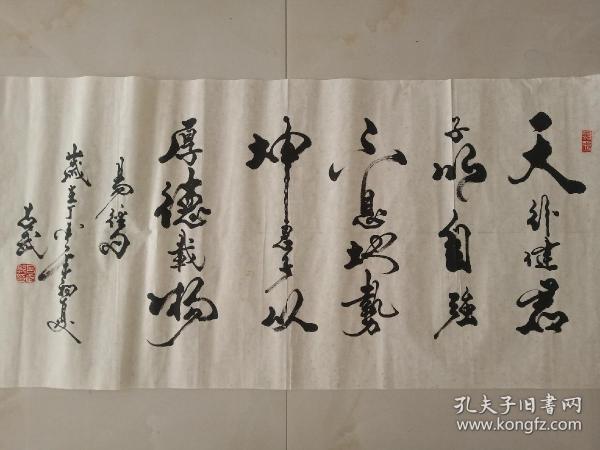 天行健君
子以自强
不息地势
坤君子以
厚德载物
易经句
岁在丁酉年初夏
志武
孔夫子旧书网
www.kongfz.com